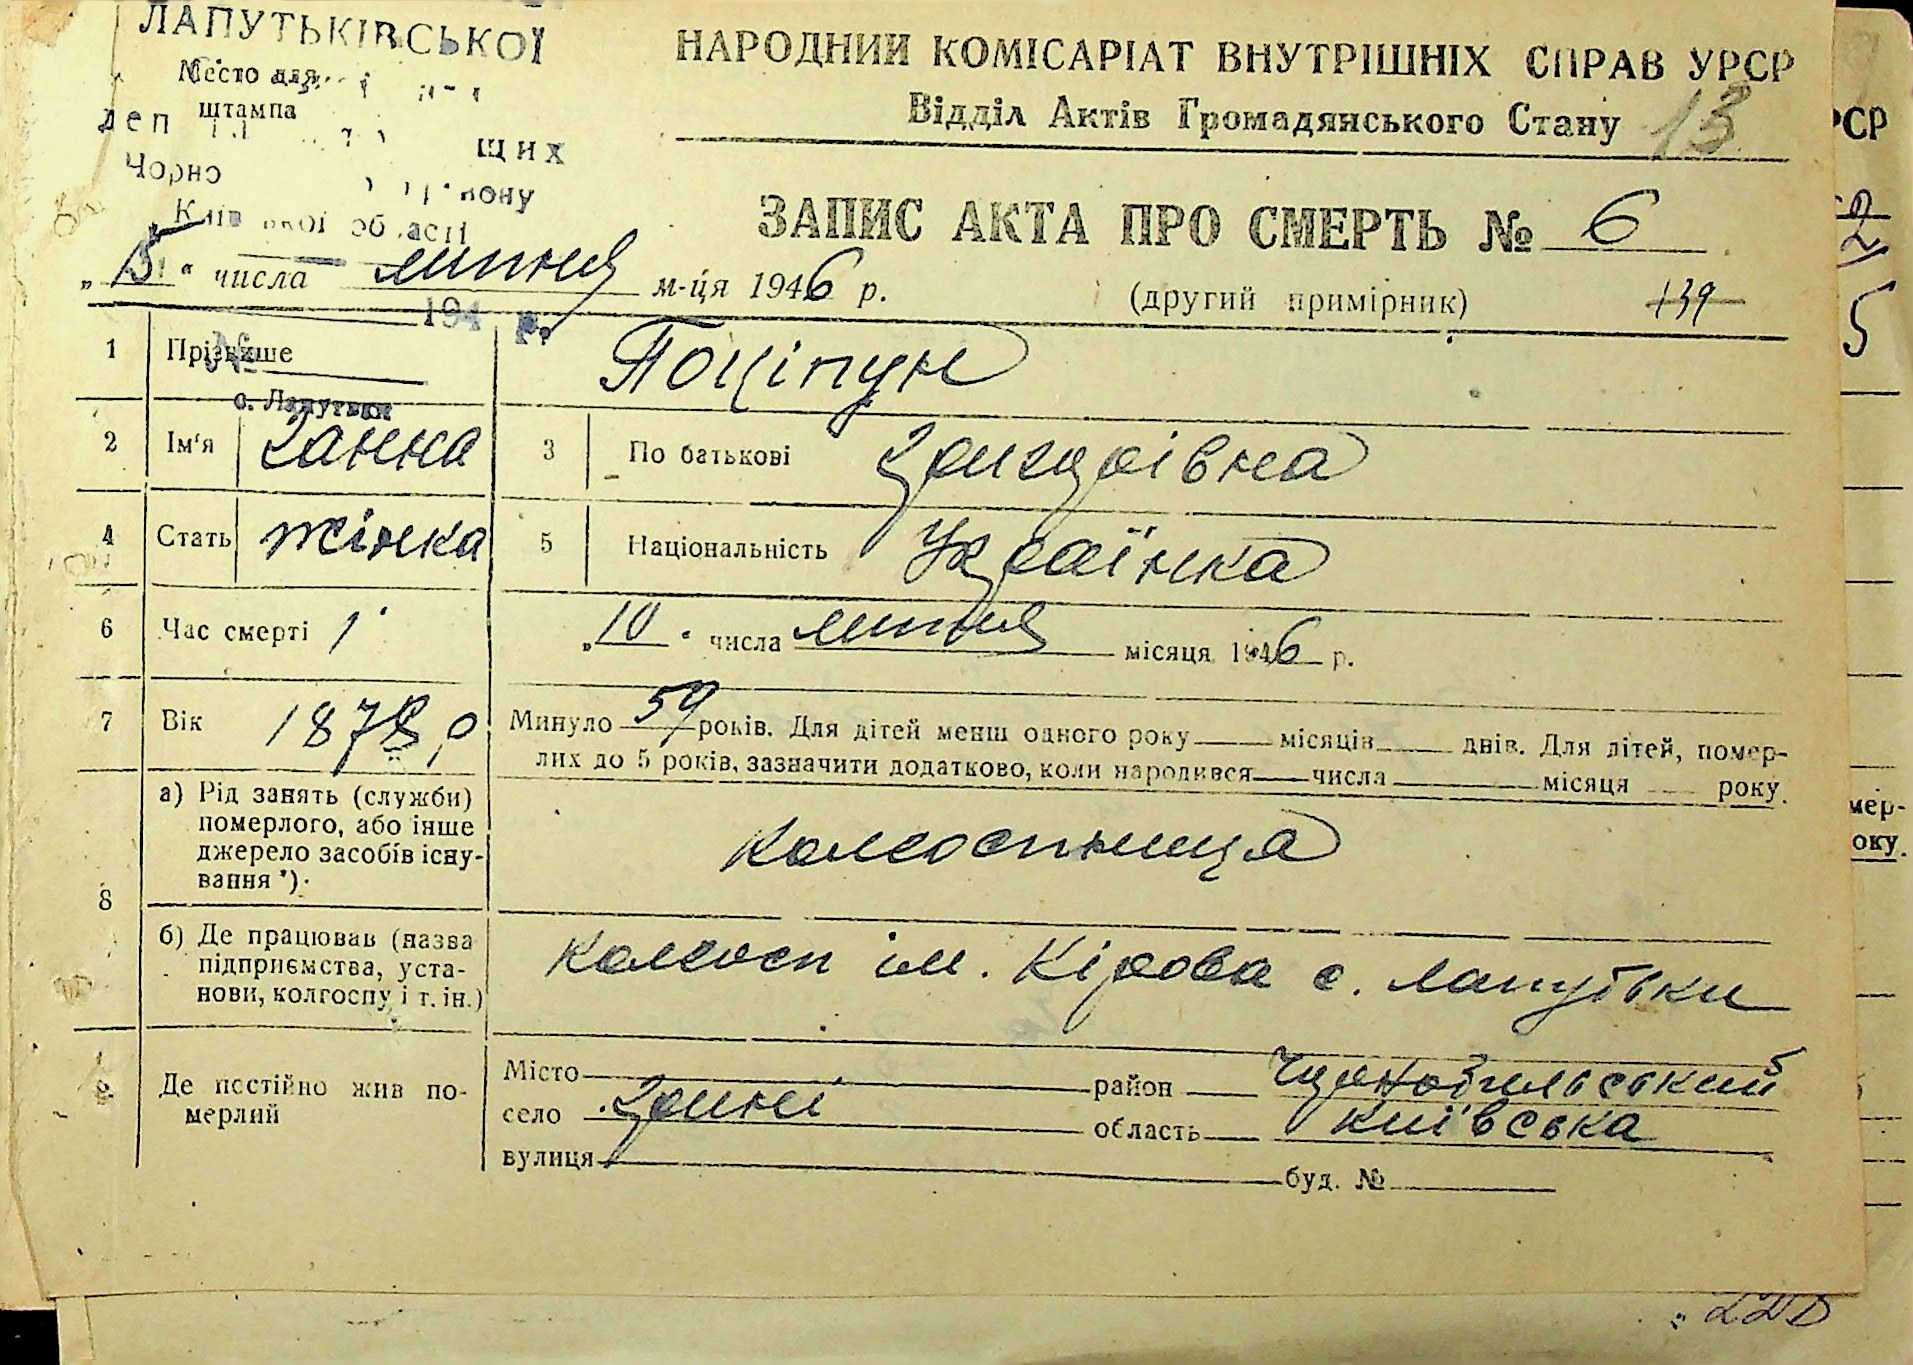 ЛАПУТЬКІВСЬКОЇ
Место для
штампа
деп щих
Чорно
Київської області
НАРОДНИЙ КОМІСАРІАТ ВНУТРІШНІХ СПРАВ УРСР
Відділ Актів Громадянського Стану 13
ЗАПИС АКТА ПРО СМЕРТЬ № 6
„15“ числа липня м-ця 1946 р.
(другий примірник) 139
194 р.
1 Прізвище Поціпун
№
с. Лапутьки
2 Ім'я Ганна 3 По батькові Григорівна
4 Стать жінка 5 Національність Українка
6 Час смерті 1 „10“ числа липня місяця 1946 р.
7 Вік 1878 р Минуло 59 років. Для дітей менш одного року місяців днів. Для дітей, помер-
лих до 5 років, зазначити додатково, коли народився числа місяця року.
8 а) Рід занять (служби)
померлого, або інше
джерело засобів існу-
вання *).
колгоспниця
б) Де працював (назва
підприємства, уста-
нови, колгоспу і т. ін.)
Колгосп ім. Кірова с. Лапутьки
Де постійно жив по-
мерлий
Місто район Чорнобильський
село Грині область Київська
вулиця буд. №
РСР
52
5
мер-
оку.
220